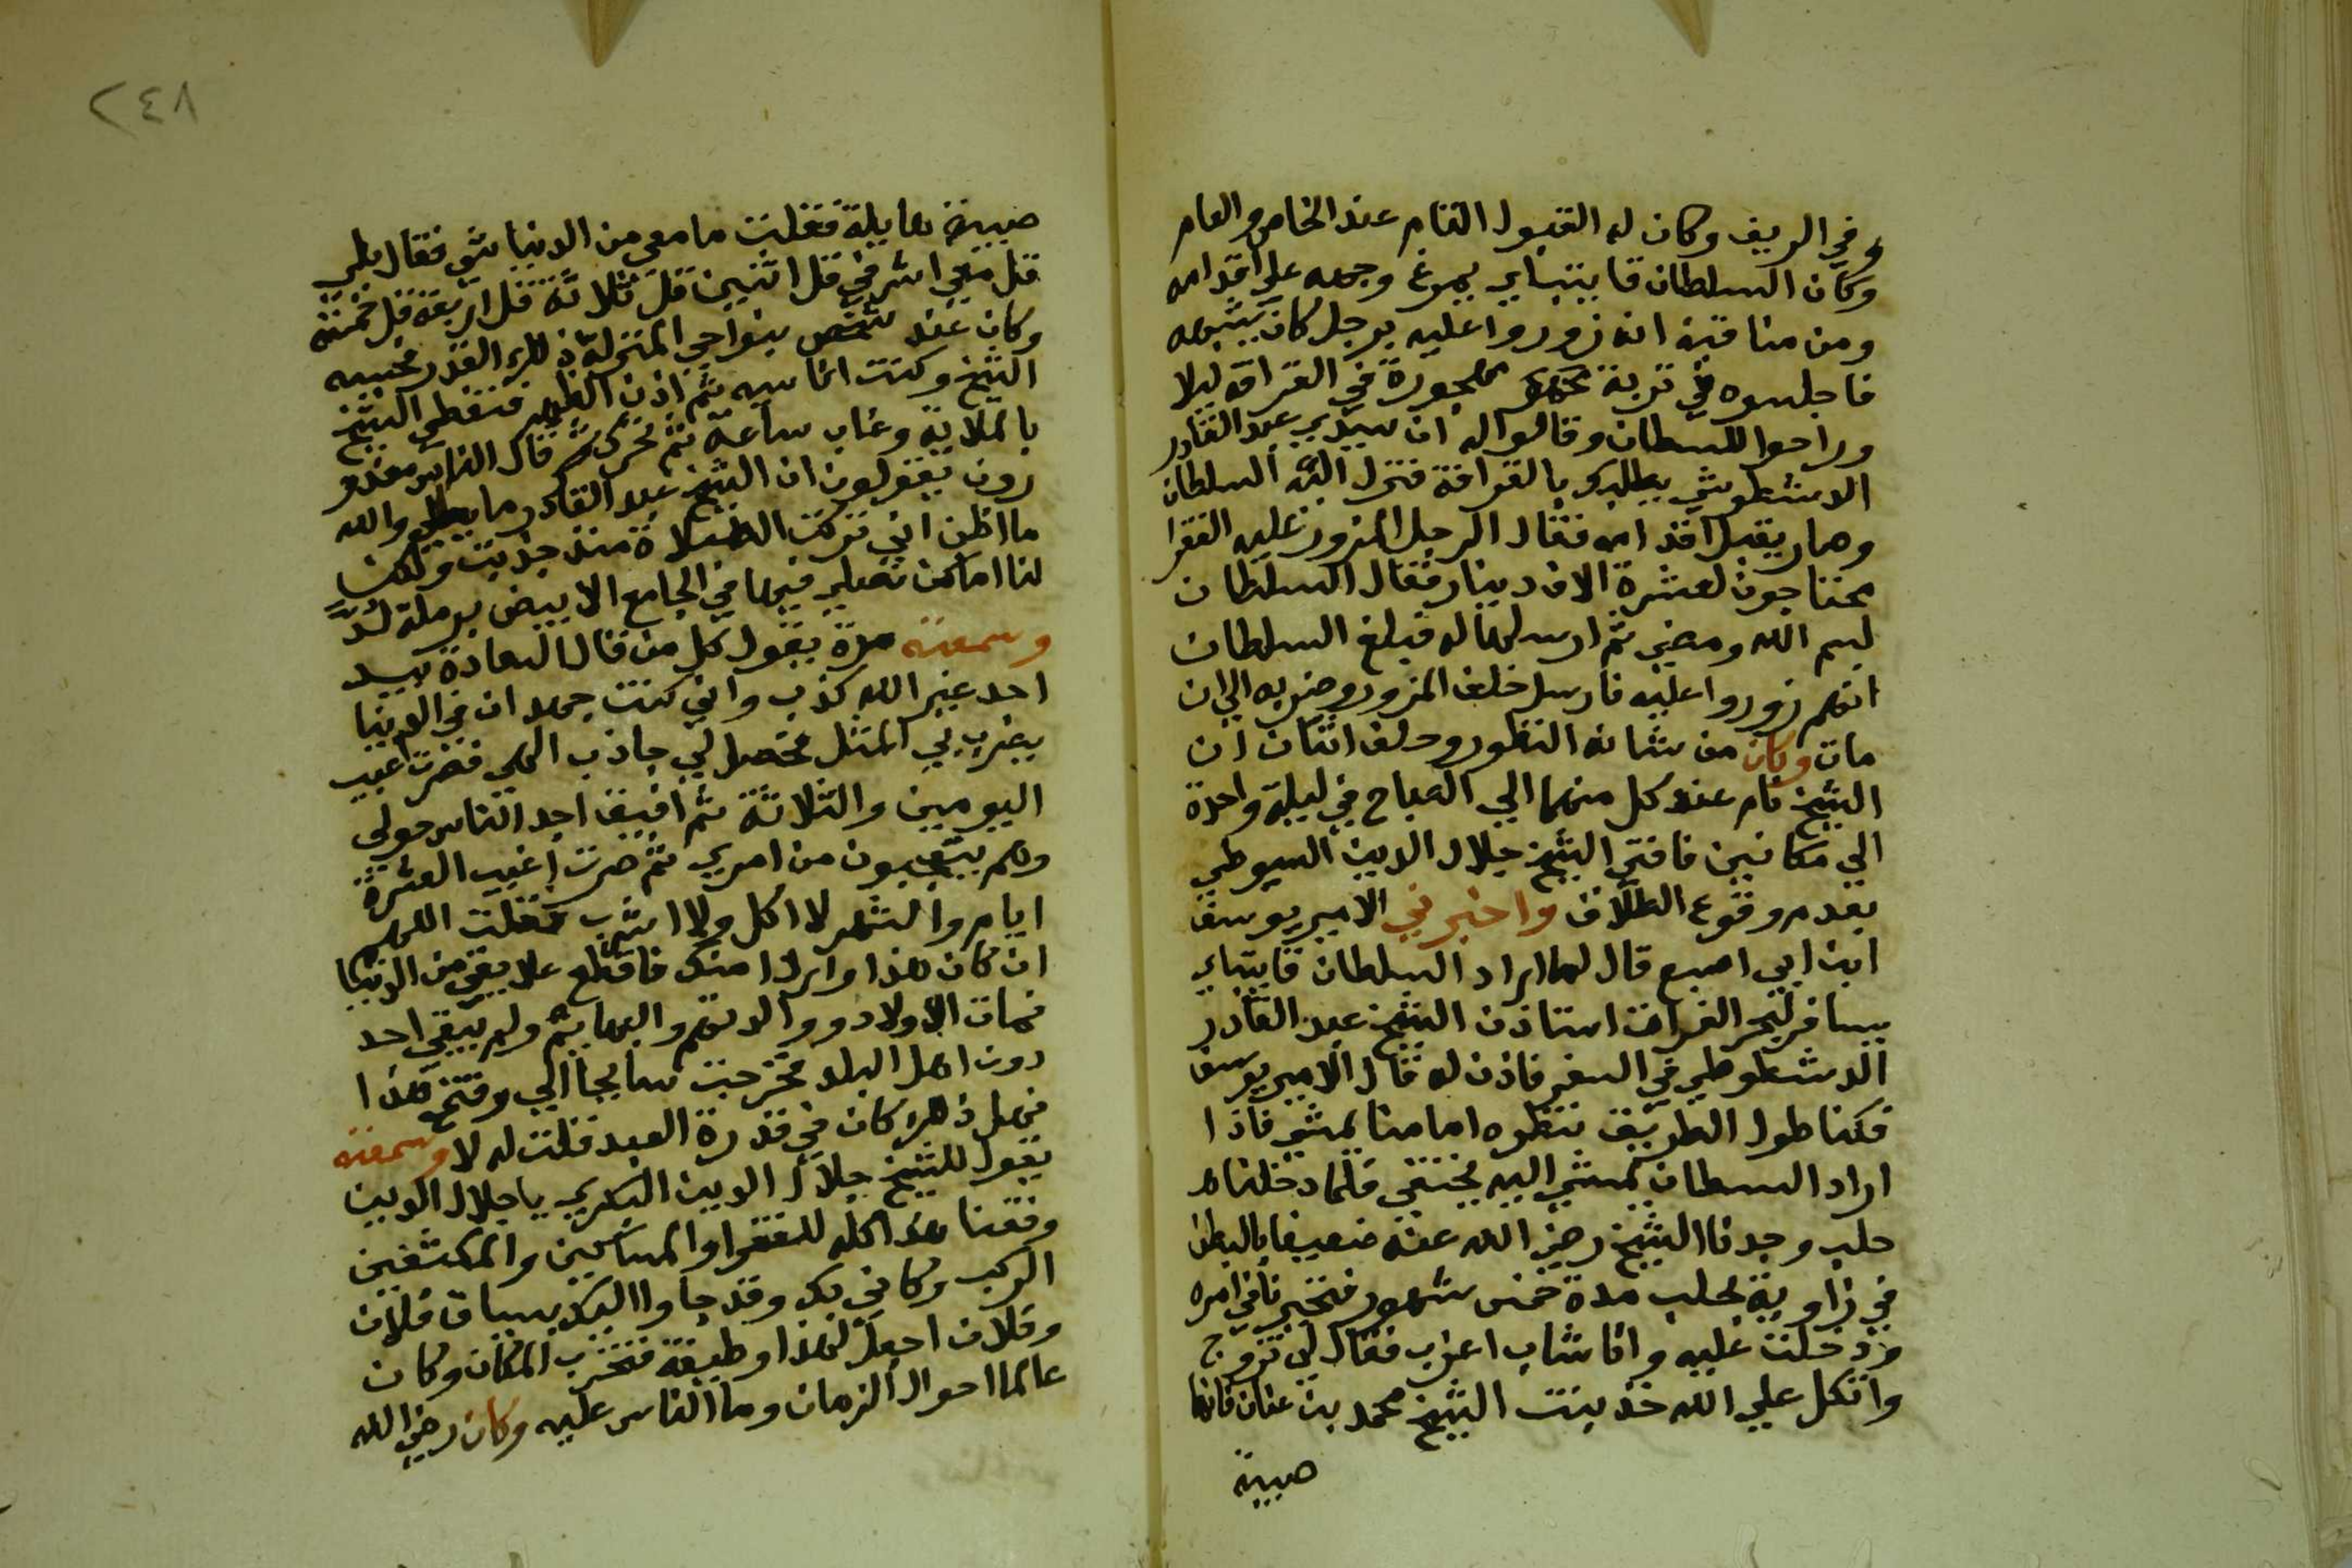 وفي الريف وكان له القبول التام عند الخاص والعام
وكان السلطان قايتباي يمرغ وجهه علي اقدامه
ومن مناقبه انه زوروا عليه برجل كان يشبهه
فاجلسوه في تربة مهجورة في القرافه ليلا
وراحوا للسطان وقالوا له ان سيدي عبد القادر
الاشطوطي يطلبك بالقرافة فنزل اليه السلطان
وصار يقبل اقدامه فقال الرجل المزور عليه الفقرا
محتاجون لعشرة الاف دينار فقال السلطان
بسم الله ومضي ثم ارسلها له فبلغ السلطان
انهم زوروا عليه فارسل خلف المزور وضربه الي ان
مات وكان من شانه التطور وحلف اثنان ان
الشيخ نام عند كل منهما الي الصباح في ليلة واحدة
الي مكانين فافتي الشيخ جلال الدين السيوطي
بعدم وقوع الطلاق واخبرني الامير يوسف
ابن ابي اصبع قال لما اراد السلطان قايتباي
يسافر لبحر الفرات استاذن الشيخ عبد القادر
الدشطوطي في السفر فاذن له قال الامير يوسف
فكنا طول الطريق ننظره امامنا يمشي فاذا
اراد السطان يمشي اليه يختفي فلما دخلنا
حلب وجدنا الشيخ رضي الله عنه ضعيفا بالبطن
في زاوية بحلب مدة خمس شهور فتحيرنا في امره
ودخلت عليه وانا شاب اعزب فقال لي تزوج
واتكل علي الله خذ بنت الشيخ محمد بن عنان فانها
صبية
٢٤٨
صبية هايلة فقلت ما معي من الدنيا شي فقال بلي
قل معي اشرفي قل اثنين قل ثلاثة قل اربعة قل خمسة
وكان عند شخص بنواحي المنزلة ذلك القدر فحسبه
الشيخ وكنت انا سيه ثم اذن الظهر فتغطي الشيخ
بالملاية وغاب ساعة ثم تحرك ثم قال الناس معذو
رون يقولون ان الشيخ عبد القادر ما يصلي والله
ما اظن اني تركت الصلاة منذ جذبت ولكن
لنا اماكن نصلي فيها في الجامع الابيض برملة لد
وسمعته مرة يقول كل من قال السعادة بيد
احد غير الله كذب واني كنت جهدان في الدنيا
يضرب بي المثل فحصل لي جاذب الهي فصرت اغيب
اليومين والثلاثة ثم افيق اجد الناس حولي
وهم يتعجبون من امري ثم صرت اغيب العشرة
ايام والشهر لا اكل ولا اشرب فقلت اللهم
ان كان هذا وارد منك فاقطع علايقي من الدنيا
فمات الاولاد ووالدتهم والبهايم ولم يبقي احد
دون اهل البلد فخرجت سايحا الي وقتي هذا
فهل ذلك كان في قدرة العبد قلت له لا وسمعته
يقول للشيخ جلال الدين البكري يا جلال الدين
وقفنا هذا كله للفقرا والمساكين والمكشفين
الركب وكاني بك وقد جاوا اليك بسياق فلان
وفلان اجعل لهذا وظيفة فتخرب المكان وكان
عالما احوال الزمان وما الناس عليه وكان رضي الله